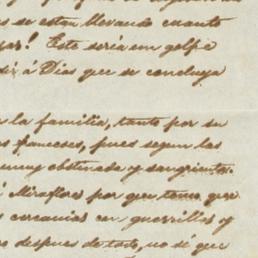 se estan llevando cuanto
! Este seria un golpe
dir á Dios que se concluya
la familia, tanto por su
pues segun las
muy obstinada y sangrienta.
Miraflores por que temo que
cercanias en guerrillas y
despues de todo, no sé que